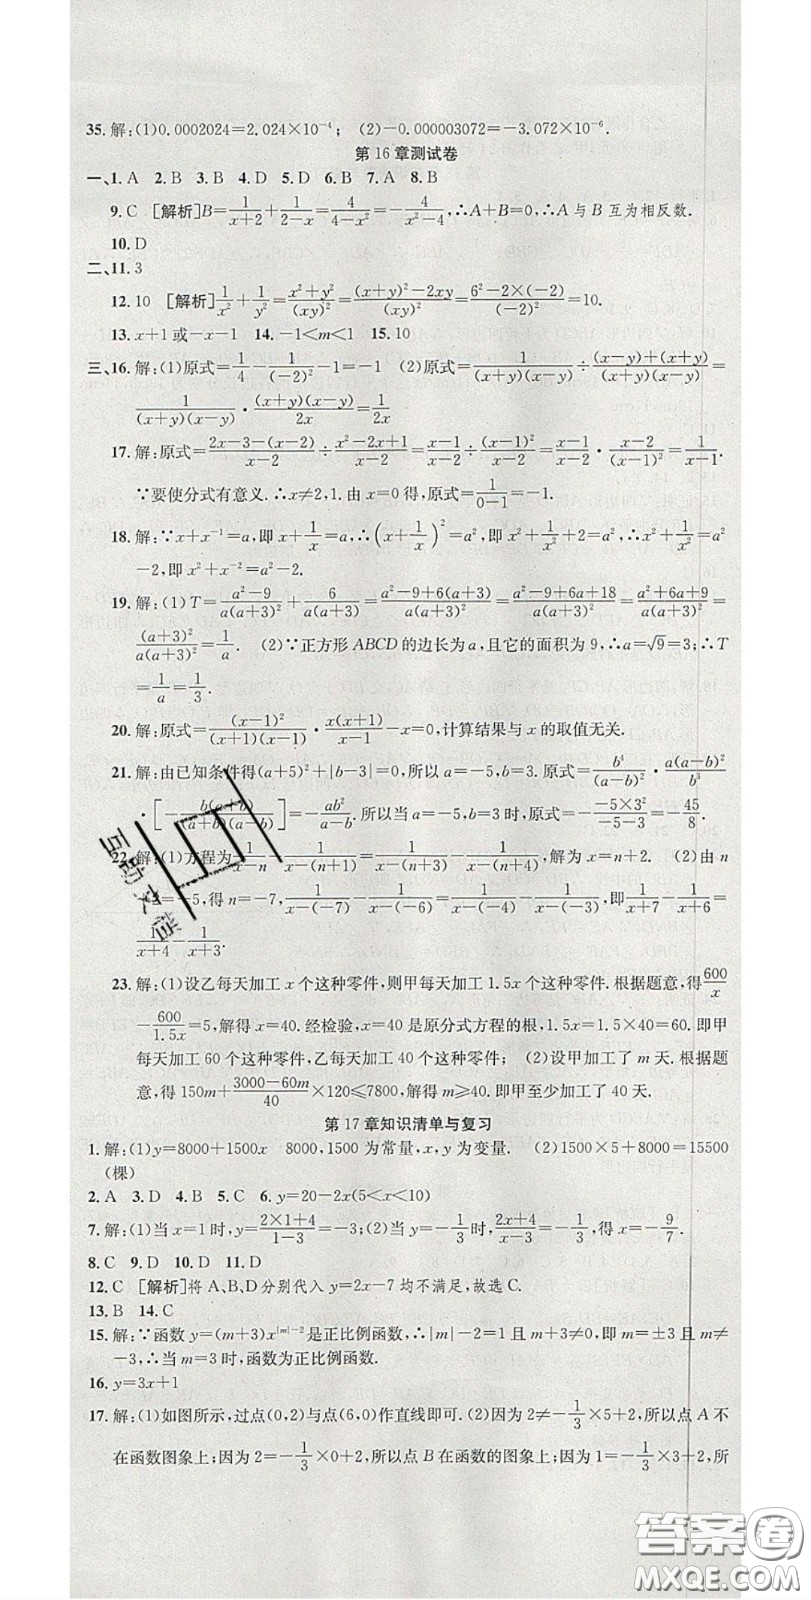 35. 解:(1)0.0002024=2.024×10⁻⁴; (2)-0.000003072=-3.072×10⁻⁶.
第16章测试卷
一、1. A 2. B 3. B 4. D 5. D 6. B 7. A 8. B
9. C [解析]B=1/(x+2)+1/(2-x)=4/(4-x²)=-4/(x²-4),∴A+B=0,∴A与B互为相反数.
10. D
二、11. 3
12. 10 [解析]1/x²+1/y²=(x²+y²)/(xy)²=((x+y)²-2xy)/(xy)²=(6²-2×(-2))/(-2)²=10.
13. x+1或-x-1 14. -1<m<1 15. 10
三、16. 解:(1)原式=1/4-1/(-2)²-1=-1 (2)原式=1/((x+y)(x-y))÷((x-y)+(x+y))/((x+y)(x-y))=
1/((x+y)(x-y))·((x+y)(x-y))/2x=1/2x
17. 解:原式=(2x-3-(x-2))/(x-2)÷(x²-2x+1)/(x-2)=(x-1)/(x-2)÷(x-1)²/(x-2)=(x-1)/(x-2)·(x-2)/(x-1)²=1/(x-1).
∵要使分式有意义.∴x≠2,1. 由x=0得,原式=1/(0-1)=-1.
18. 解:∵x+x⁻¹=a,即x+1/x=a,∴(x+1/x)²=a²,即x²+1/x²+2=a²,∴x²+1/x²=a²
-2,即x²+x⁻²=a²-2.
19. 解:(1)T=(a²-9)/(a(a+3)²)+6/(a(a+3))=(a²-9+6(a+3))/(a(a+3)²)=(a²-9+6a+18)/(a(a+3)²)=(a²+6a+9)/(a(a+3)²)=
(a+3)²/(a(a+3)²)=1/a. (2)∵正方形ABCD的边长为a,且它的面积为9,∴a=√9=3;∴T
=1/a=1/3.
20. 解:原式=(x-1)²/((x+1)(x-1))·x(x+1)/(x-1)-x=0,计算结果与x的取值无关.
21. 解:由已知条件得(a+5)²+|b-3|=0,所以a=-5,b=3. 原式=b⁴/(a-b)²·a(a-b)²/b³
·[-b(a+b)/((a+b)(a-b))]=-ab²/(a-b). 所以当a=-5,b=3时,原式=-(-5×3²)/(-5-3)=-45/8.
22. 解:(1)方程为1/(x-n)-1/(x-(n+1))=1/(x-(n+3))-1/(x-(n+4)),解为x=n+2. (2)由n
=-5,得n=-7,1/(x-(-7))-1/(x-(-6))=1/(x-(-4))-1/(x-(-3)),即1/(x+7)-1/(x+6)=
1/(x+4)-1/(x+3).
23. 解:(1)设乙每天加工x个这种零件,则甲每天加工1.5x个这种零件. 根据题意,得600/x
-600/1.5x=5,解得x=40. 经检验,x=40是原分式方程的根,1.5x=1.5×40=60. 即甲
每天加工60个这种零件,乙每天加工40个这种零件; (2)设甲加工了m天. 根据题
意,得150m+(3000-60m)/40×120≤7800,解得m≥40. 即甲至少加工了40天.
第17章知识清单与复习
1. 解:(1)y=8000+1500x 8000,1500为常量,x,y为变量. (2)1500×5+8000=15500
(棵)
2. A 3. D 4. B 5. C 6. y=20-2x(5<x<10)
7. 解:(1)当x=1时,y=(2×1+4)/(1-3)=-3;(2)当y=-1/3时,(2x+4)/(x-3)=-1/3,得x=-9/7.
8. C 9. D 10. D 11. D
12. C [解析]将A、B、D分别代入y=2x-7均不满足,故选C.
13. B 14. C
15. 解:∵函数y=(m+3)x^(|m|-2)是正比例函数,∴|m|-2=1且m+3≠0,即m=±3且m≠
-3,∴当m=3时,函数为正比例函数.
16. y=3x+1
17. 解:(1)如图所示,过点(0,2)与点(6,0)作直线即可.(2)因为2≠-1/3×5+2,所以点A不
在函数图象上;因为2=-1/3×0+2,所以点B在函数的图象上;因为1=-1/3×3+2,所
互助文档
答案圈
MXQE.COM